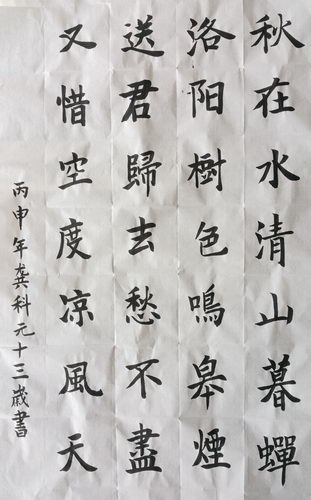 秋在水清山暮蟬
洛阳樹色鳴皋煙
送君歸去愁不盡
又惜空度凉風天
丙申年龚科元十三歲書